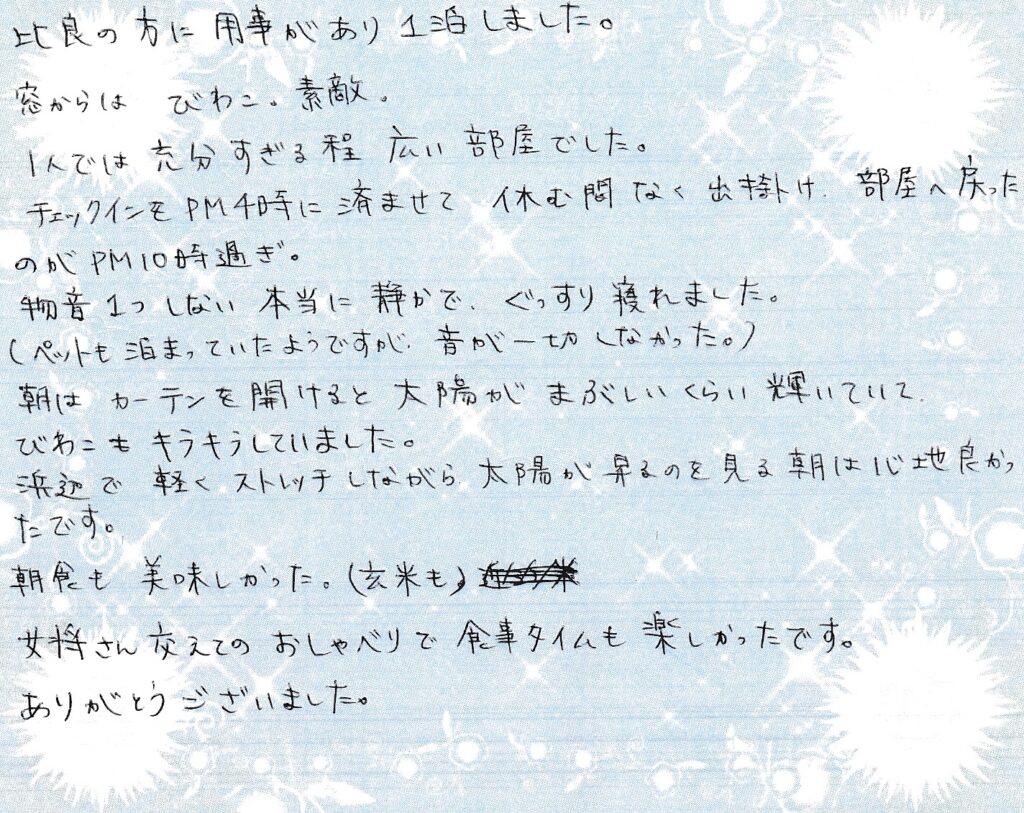 比良の方に用事があり1泊しました。
窓からは びわこ。素敵。
1人では 充分すぎる程 広い 部屋でした。
チェックインをPM4時に済ませて 休む間なく出掛け、部屋へ戻った
のがPM10時過ぎ。
物音1つしない 本当に 静かで、ぐっすり寝れました。
(ペットも泊まっていたようですが、音が一切しなかった。)
朝は カーテンを開けると 太陽が まぶしいくらい輝いていて、
びわこも キラキラしていました。
浜辺で 軽く ストレッチしながら 太陽が昇るのを見る朝は心地良かっ
たです。
朝食も 美味しかった。(玄米も)
女将さん交えての おしゃべりで 食事タイムも 楽しかったです。
ありがとうございました。